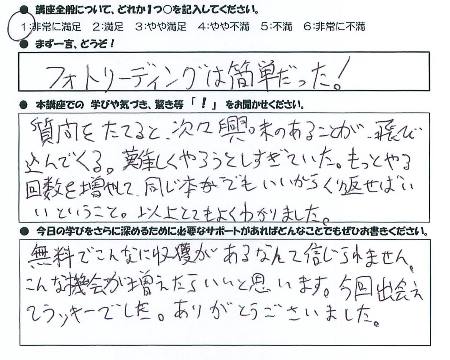 ● 講座全般について、どれか1つ○を記入してください。
1:非常に満足 2:満足 3:やや満足 4:やや不満 5:不満 6:非常に不満
● まず一言、どうぞ！
フォトリーディングは簡単だった！
● 本講座での 学びや気づき、驚き等「！」をお聞かせください。
質問をたてると、次々興味のあることが、飛び
込んでくる。難しくやろうとしすぎていた。もっとやる
回数を増やして、同じ本でもいいからくり返せばい
いということ。以上とてもよくわかりました。
● 今日の学びをさらに深めるために必要なサポートがあればどんなことでもぜひお書きください。
無料でこんなに収獲があるなんて信じられません。
こんな機会が増えたらいいと思います。今回出会え
てラッキーでした。ありがとうございました。